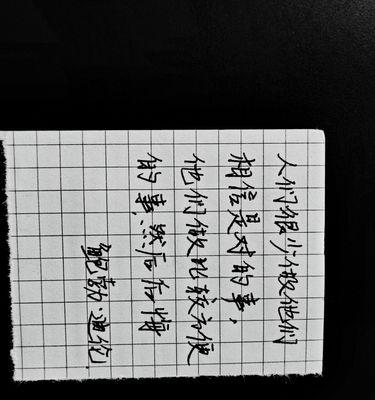 人们很少做他们
相信是对的事,
他们做比较方便
的事,然后后悔
鲍勃·迪伦